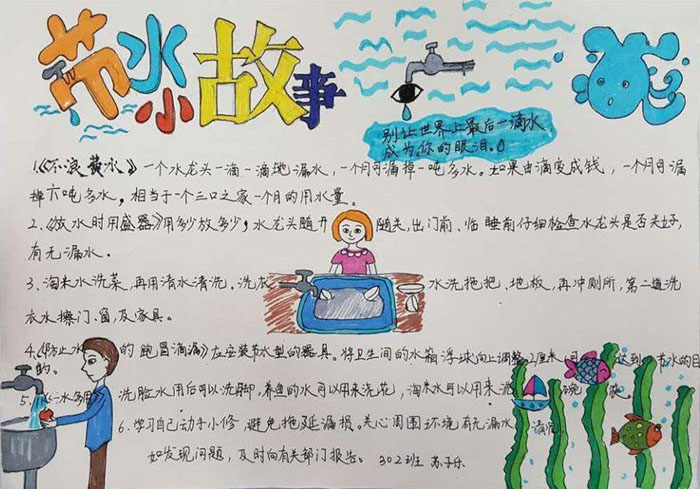 节水小故事
别让世界上最后一滴水
成为你的眼泪。
1.《不浪费水》一个水龙头一滴一滴地漏水,一个月可漏掉一吨多水。如果由滴变成钱,一个月可漏
掉六吨多水,相当于一个三口之家一个月的用水量。
2.《放水时用盛器》用多少放多少,水龙头随开随关,出门前、临睡前仔细检查水龙头是否关好,
有无漏水。
3.淘米水洗菜,再用清水清洗。洗衣水洗拖把、地板,再冲厕所,第二道洗
衣水擦门、窗,及家具。
4.《防止水的跑冒滴漏》在安装节水型的器具。将卫生间的水箱浮球向上调整2厘米,达到节水的目
的。
5.《一水多用》洗脸水用后可以洗脚,养鱼的水可以用来浇花,淘米水可以用来洗碗
6.学习自己动手小修,避免拖延漏报。关心周围环境有无漏水、滴漏
如发现问题,及时向有关部门报告。302班 苏子乐